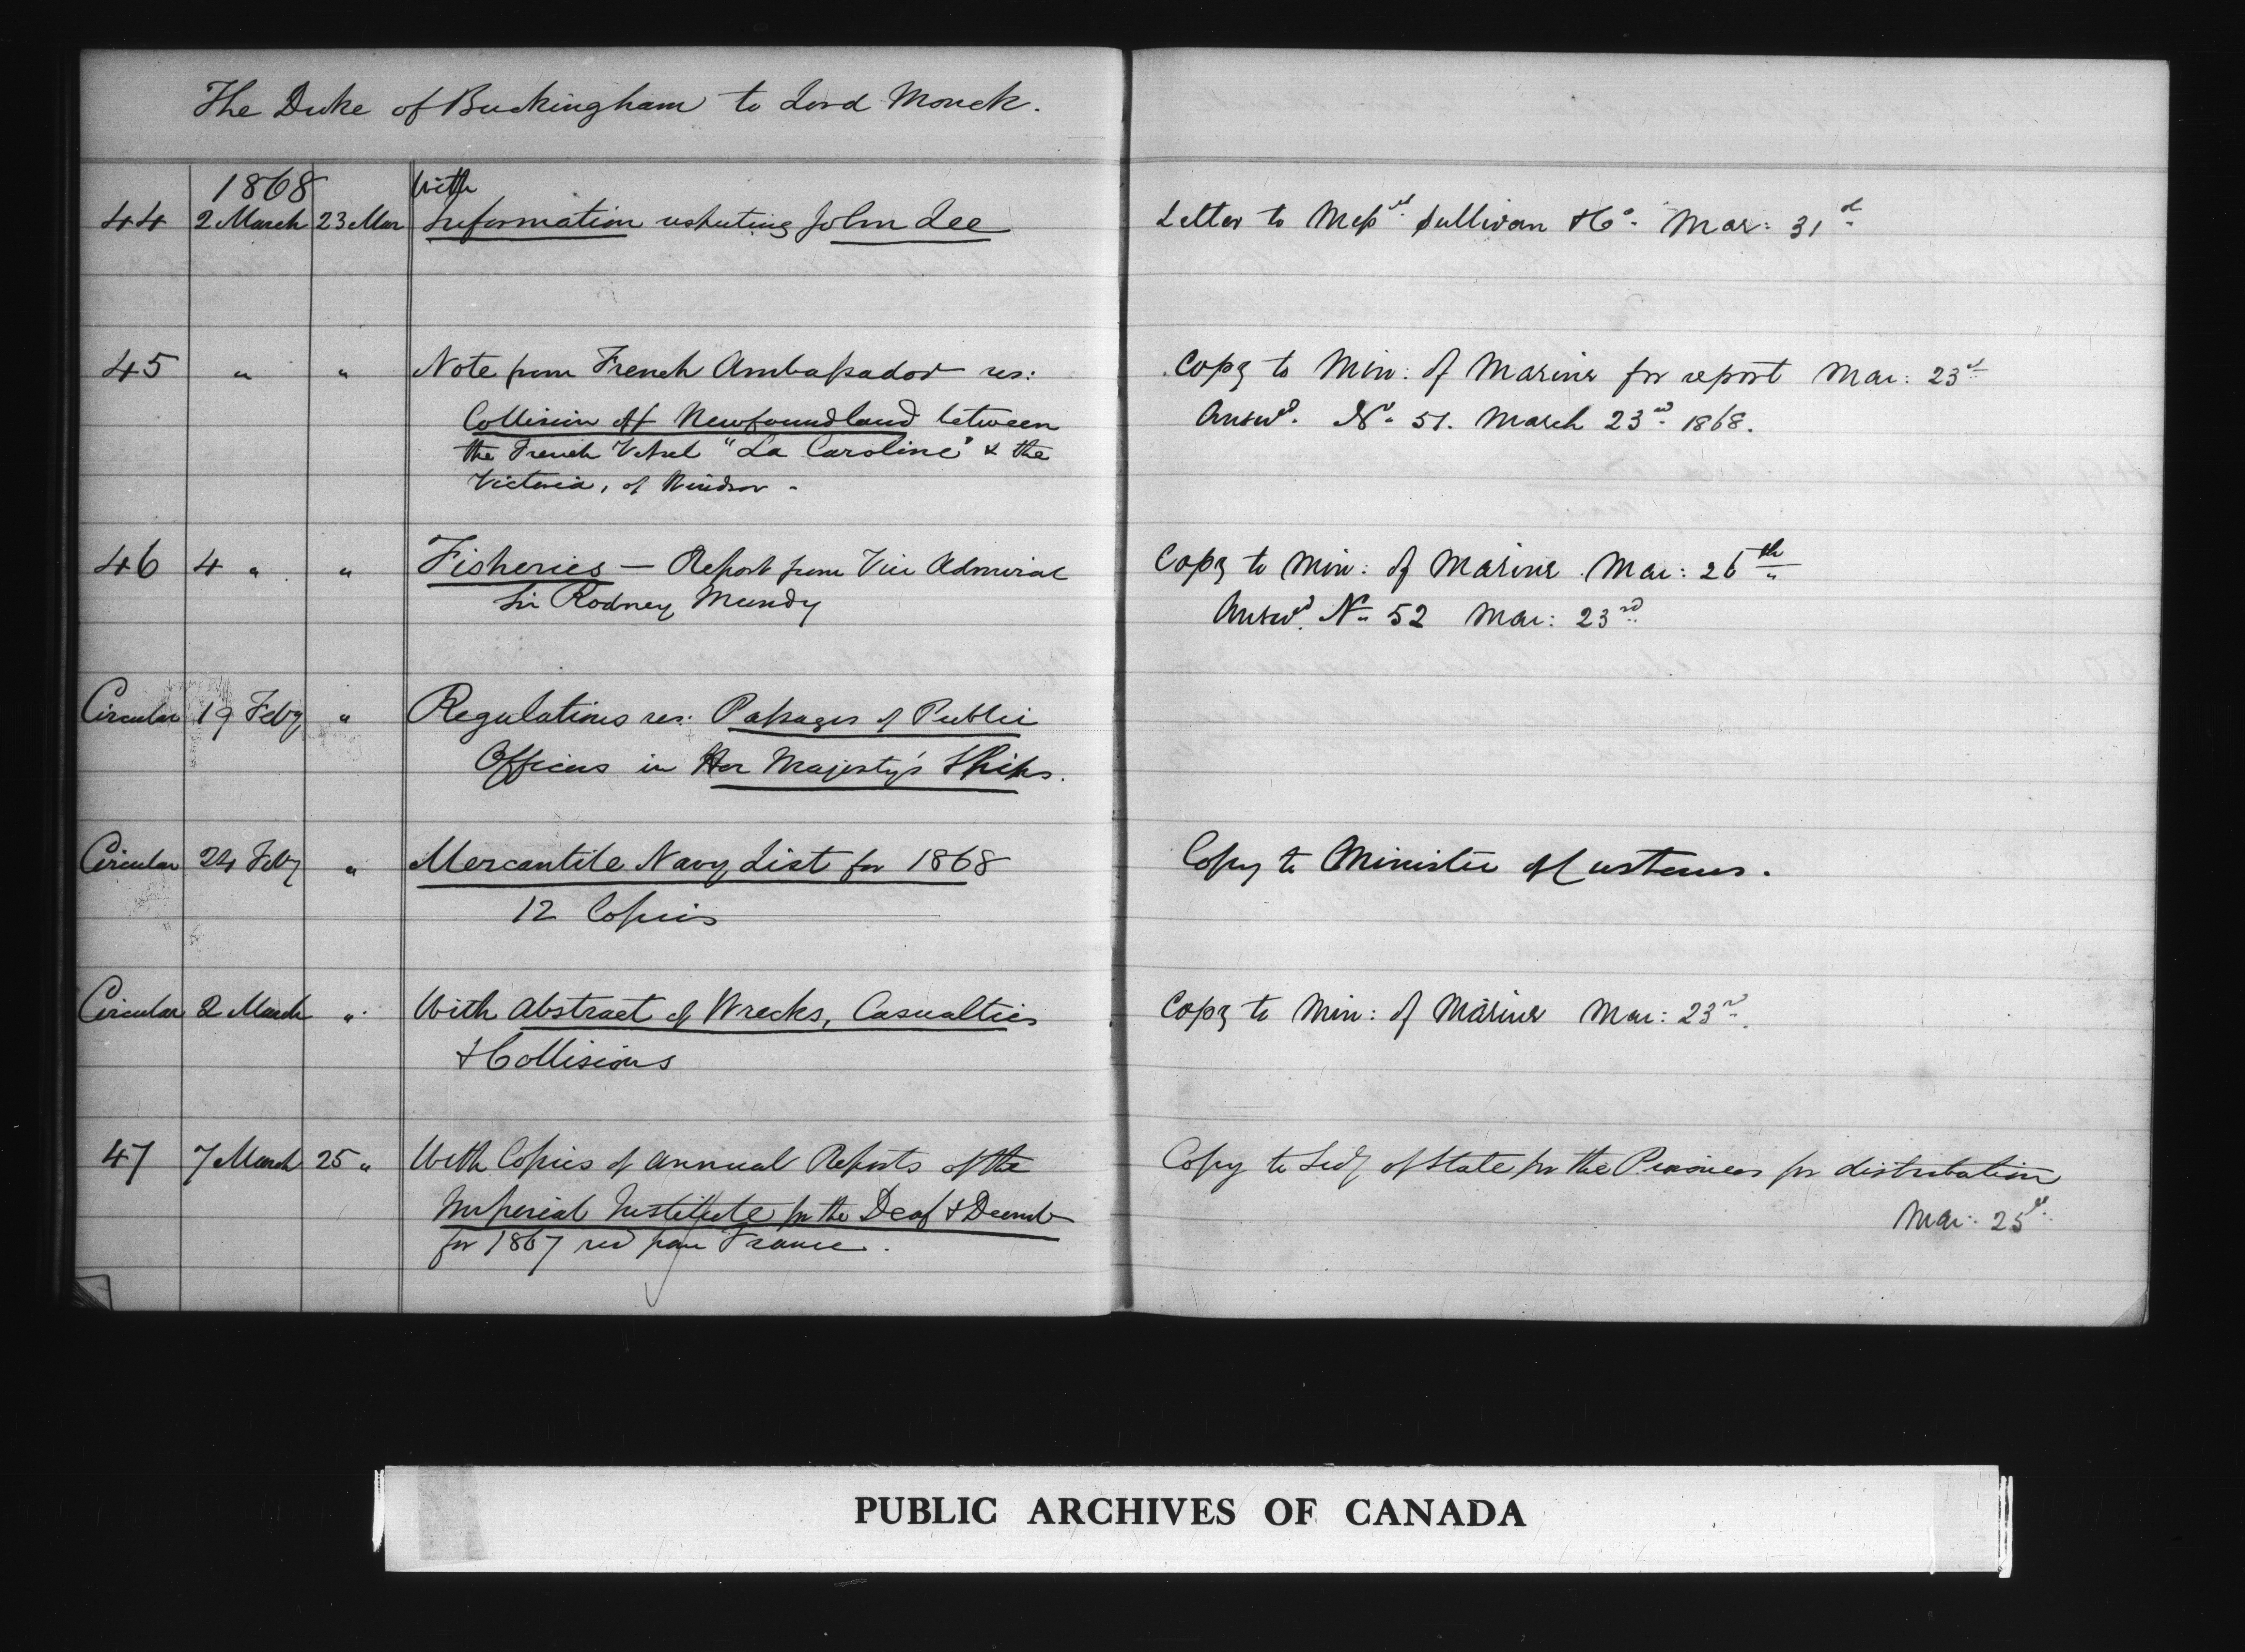 The Duke of Buckingham to Lord Monck.
1868 With
44 2 March 23 Mar Information respecting John Lee Letter to Messrs. Sullivan & Co. Mar: 31st
45 " " Note from French Ambassador res: Copy to Min: of Marine for report Mar: 23rd
Collision off Newfoundland between Answd. No. 51. March 23rd 1868.
the French Vessel "La Caroline" & the
Victoria, of Windsor -
46 4 " " Fisheries — Report from Vice Admiral Copy to Min: of Marine Mar: 26th
Sir Rodney Mundy Answd. No. 52 Mar: 23rd
Circular 19 Feby " Regulations res: Passages of Public
Officers in Her Majesty's Ships.
Circular 24 Feby " Mercantile Navy List for 1868 Copy to Minister of Customs.
12 Copies
Circular 2 March " With Abstract of Wrecks, Casualties Copy to Min: of Marine Mar: 23rd.
& Collisions
47 7 March 25 " With Copies of Annual Reports of the Copy to Secy of State for the Provinces for distribution
Imperial Institute for the Deaf & Dumb Mar: 25
for 1867 recd from France.
PUBLIC ARCHIVES OF CANADA